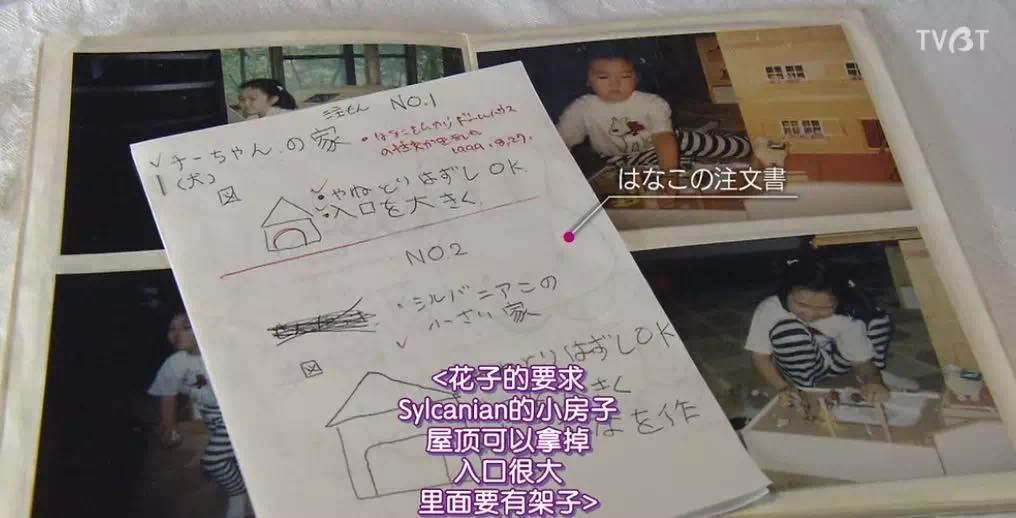 TVBT
注もん NO.1
✓チーちゃんの家
・はなこちゃんから
1999.8.27.
(犬)
図
✓やねとりはずしOK
・入口を大きく
はなこの注文書
NO.2
・シルバニアンの
小さい家
✓
図
とりはずしOK
きく
なを作
<花子的要求
Sylcanian的小房子
屋顶可以拿掉
入口很大
里面要有架子>